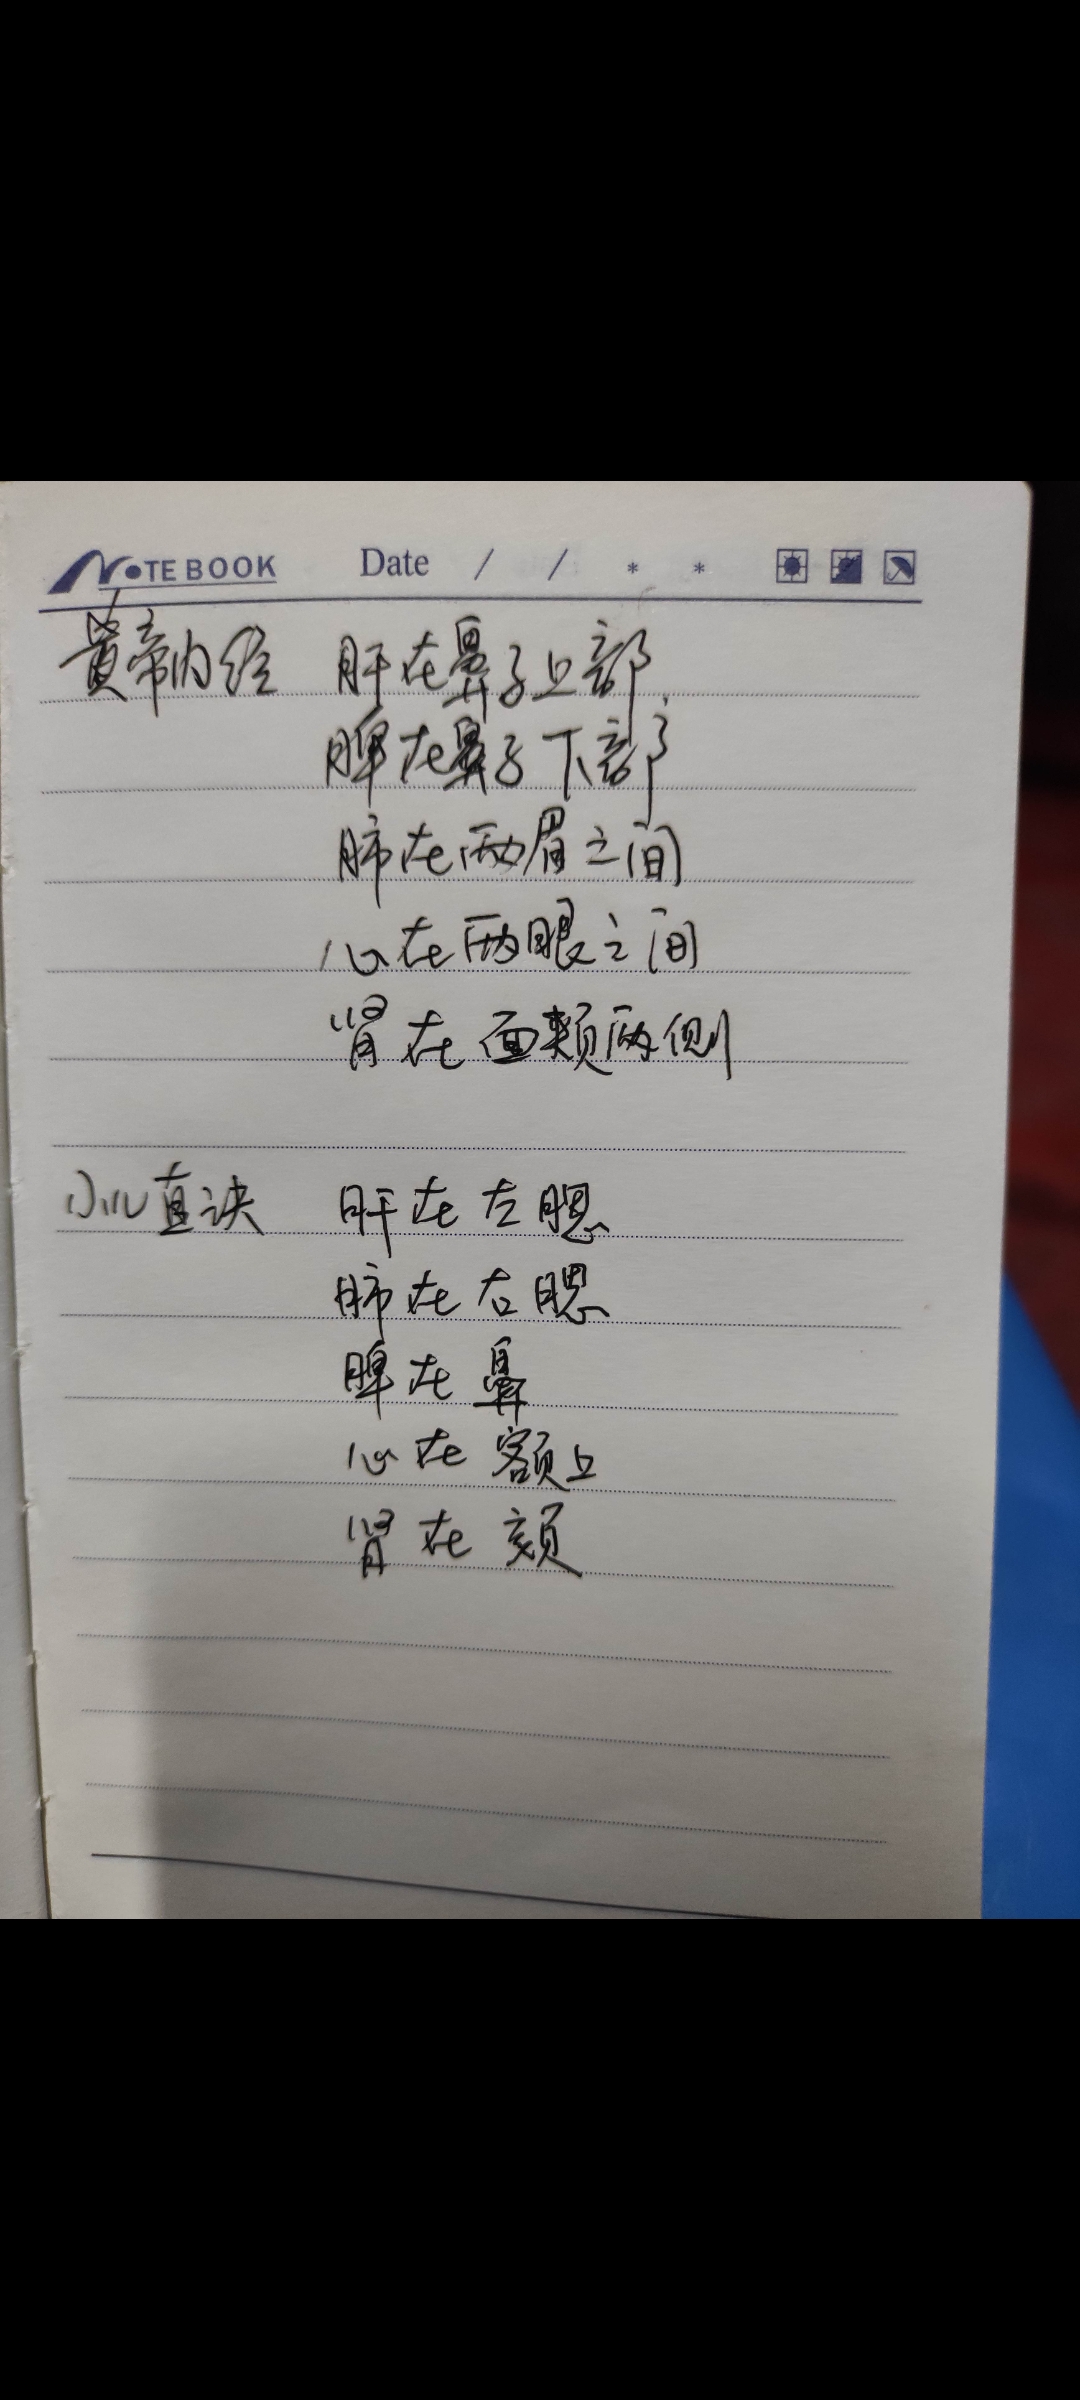 NOTEBOOK Date / / * *
黄帝内经 肝在鼻子上部.
脾在鼻子下部
肺在两眉之间
心在两眼之间
肾在面颊两侧
小儿直诀 肝在左腮
肺在右腮
脾在鼻
心在额上
肾在颏